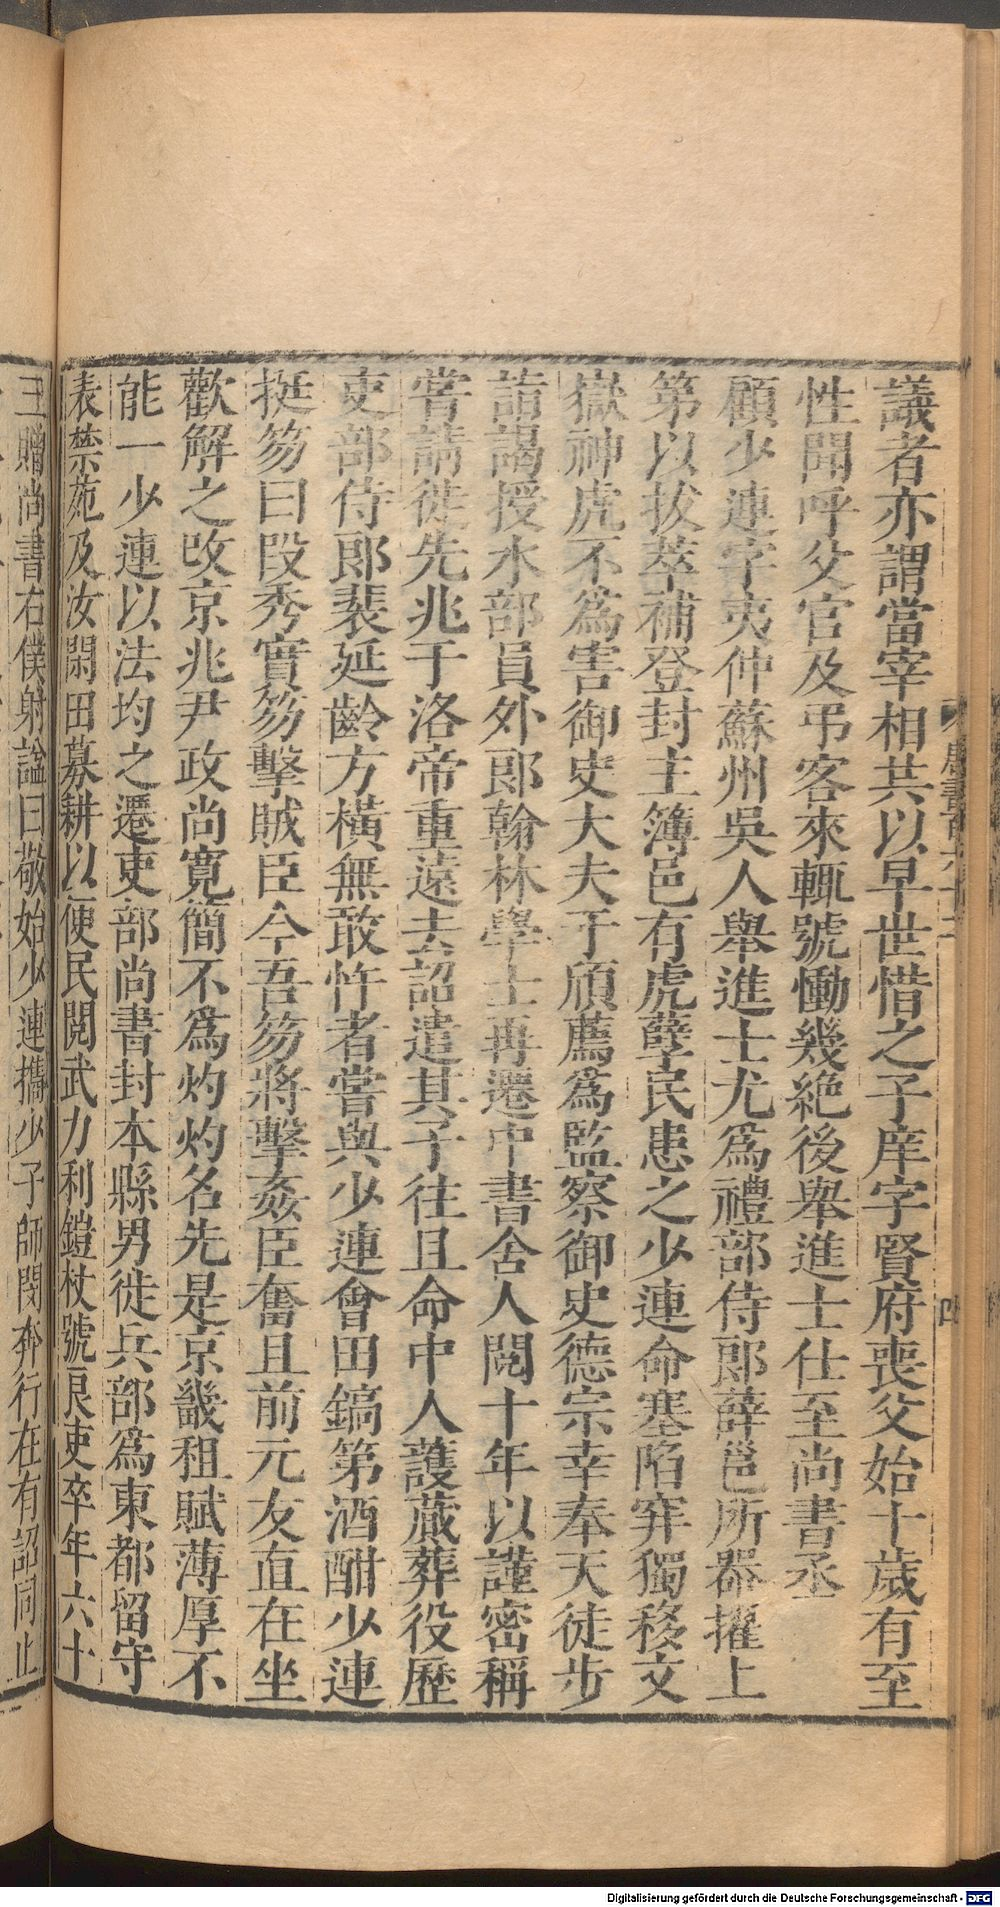 議者亦謂當宰相共以早世惜之子庠字賢府喪父始十歲有至
性聞呼父官及弔客來輒號慟幾絶後舉進士仕至尚書丞
顧少連字夷仲蘇州吳人舉進士尤爲禮部侍郎薛邕所器擢上
第以拔萃補登封主簿邑有虎孽民患之少連命塞陷穽獨移文
嶽神虎不爲害御史大夫于頎薦爲監察御史德宗幸奉天徒步
詣謁授水部員外郎翰林學士再遷中書舍人閱十年以謹密稱
嘗請徙先兆于洛帝重遠去詔遣其子往且命中人護蕆葬役歷
吏部侍郎裴延齡方橫無敢忤者嘗與少連會田鎬第酒酣少連
挺笏曰段秀實笏擊賊臣今吾笏將擊姦臣奮且前元友直在坐
歡解之改京兆尹政尚寬簡不爲灼灼名先是京畿租賦薄厚不
能一少連以法均之遷吏部尚書封本縣男徙兵部爲東都留守
表禁苑及汝閑田募耕以便民閱武力利鎧杖號良吏卒年六十
三贈尚書右僕射謚曰敬始少連攜少子師閔奔行在有詔同止
四
Digitalisierung gefördert durch die Deutsche Forschungsgemeinschaft - DFG